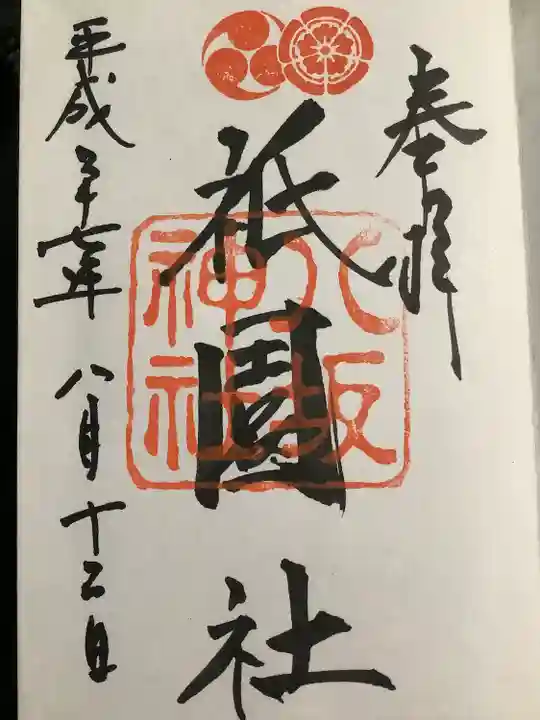 奉拝
祇園社
八坂神社
平成二十七年八月十二日